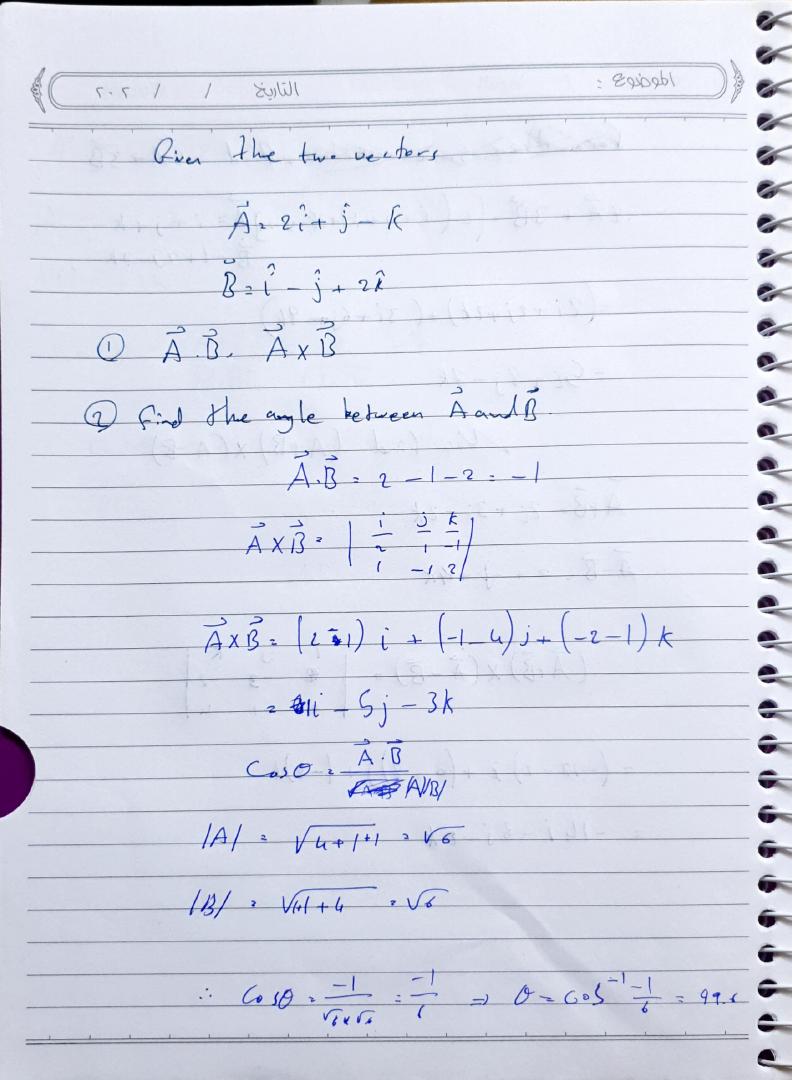 الموضوع :
التاريخ / / ٢٠٢
Given the two vectors
A⃗ = 2î + ĵ - k̂
B⃗ = î - ĵ + 2k̂
① A⃗ . B⃗ , A⃗ x B⃗
② Find the angle between A⃗ and B⃗.
A⃗.B⃗ = 2 - 1 - 2 = -1
A⃗ x B⃗ = | i j k
2 1 -1
1 -1 2 |
A⃗xB⃗ = (2-1) i + (-1-4) j + (-2-1) k
= 1i - 5j - 3k
Cosθ = A⃗ . B⃗ / |A||B|
|A| = √4+1+1 = √6
|B| = √1+1+4 = √6
∴ Cosθ = -1 / √6x√6 = -1/6 ⇒ θ = cos⁻¹ -1/6 = 99.6